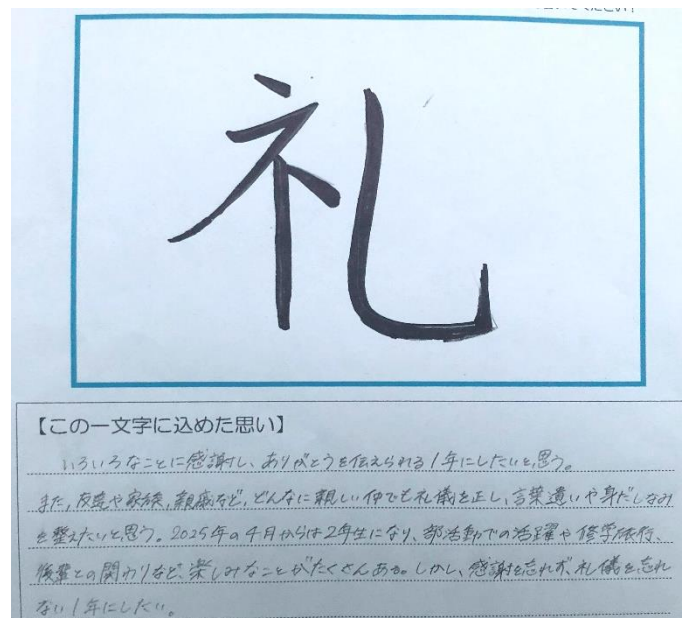 ください！
礼
【この一文字に込めた思い】
いろいろなことに感謝し、ありがとうを伝えられる1年にしたいと思う。
また、友達や家族、親戚など、どんなに親しい仲でも礼儀を正し、言葉遣いや身だしなみ
を整えたいと思う。2025年の4月からは2年生になり、部活動での活躍や修学旅行、
後輩との関わりなど、楽しみなことがたくさんある。しかし、感謝を忘れず、礼儀を忘れ
ない1年にしたい。